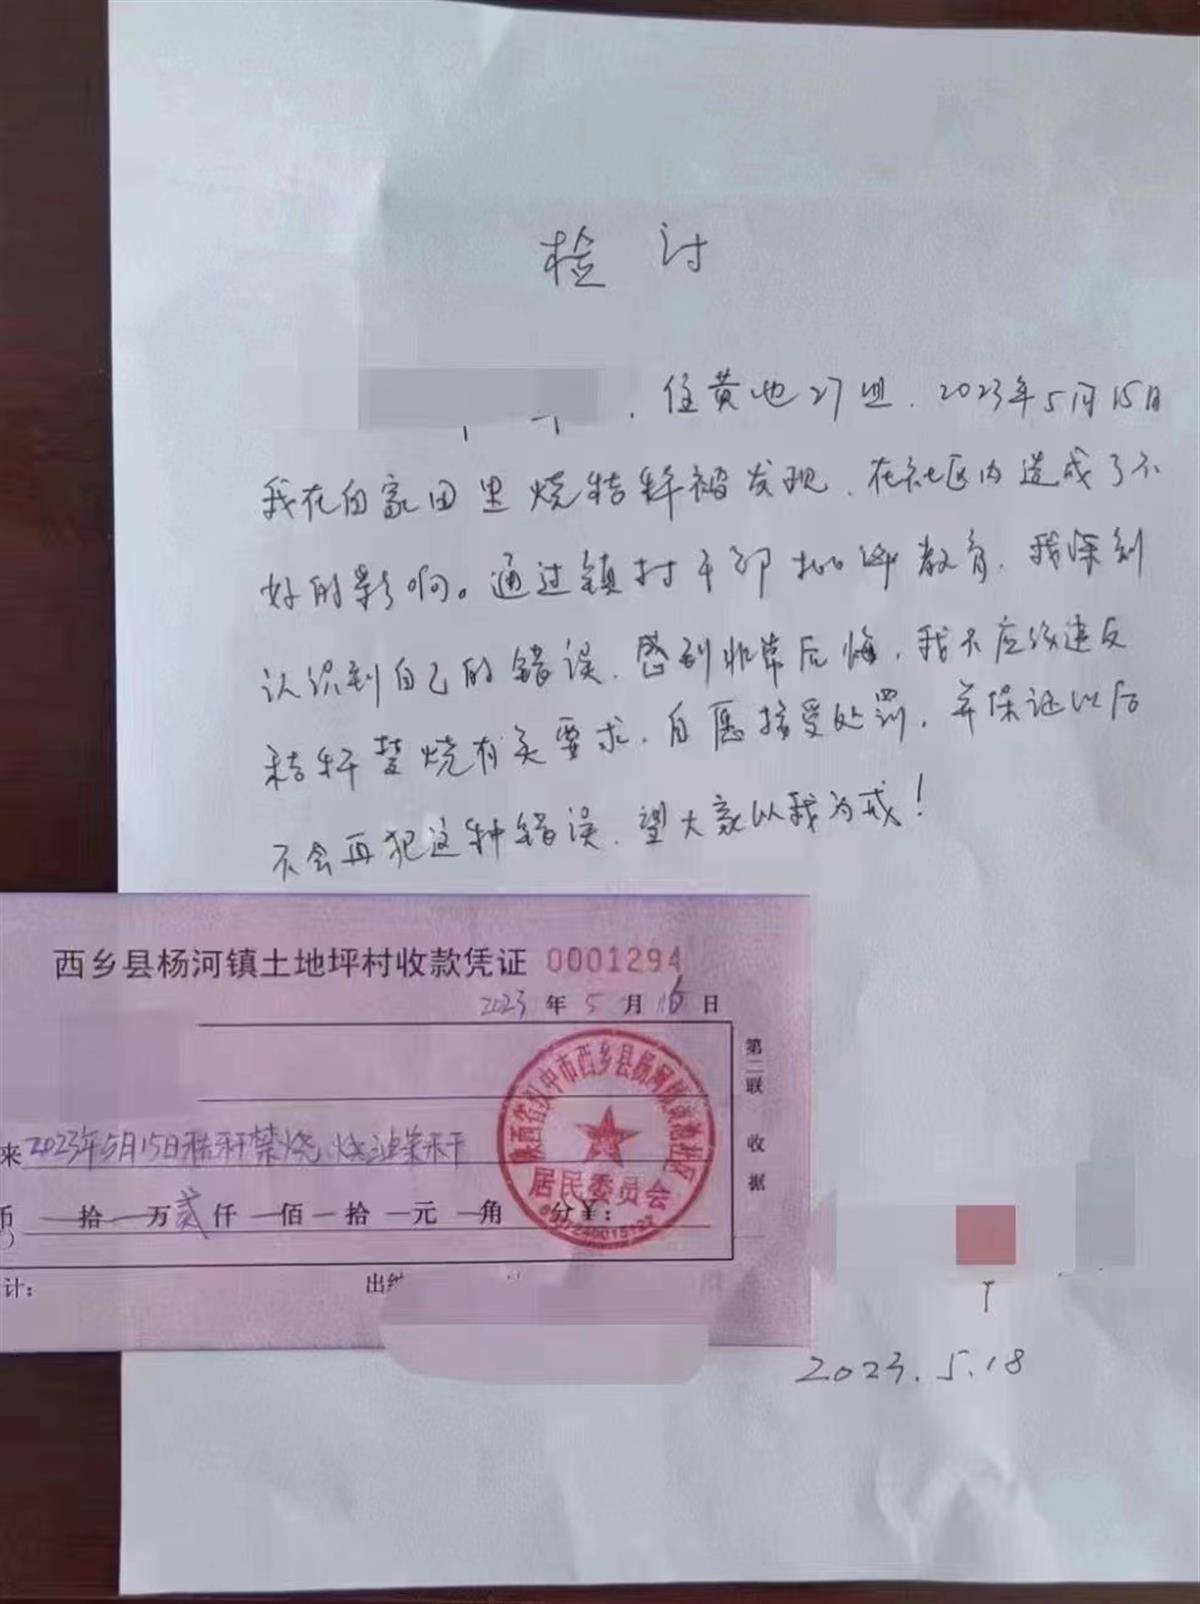 检讨
住黄池27组，2023年5月15日
我在自家田里烧秸秆被发现，在社区内造成了不
好的影响。通过镇村干部批评教育，我深刻
认识到自己的错误，感到非常后悔，我不应该违反
秸秆禁烧有关要求，自愿接受处罚，并保证以后
不会再犯这种错误，望大家以我为戒！
西乡县杨河镇土地坪村收款凭证 0001294
2023年5月16日
来 2023年5月15日秸秆禁烧，烧油菜杆
币 拾 万贰仟 佰 拾 元 角 分￥：
计： 出纳
第二联 收据
陕西省汉中市西乡县杨河镇黄池社区
居民委员会
2023.5.18